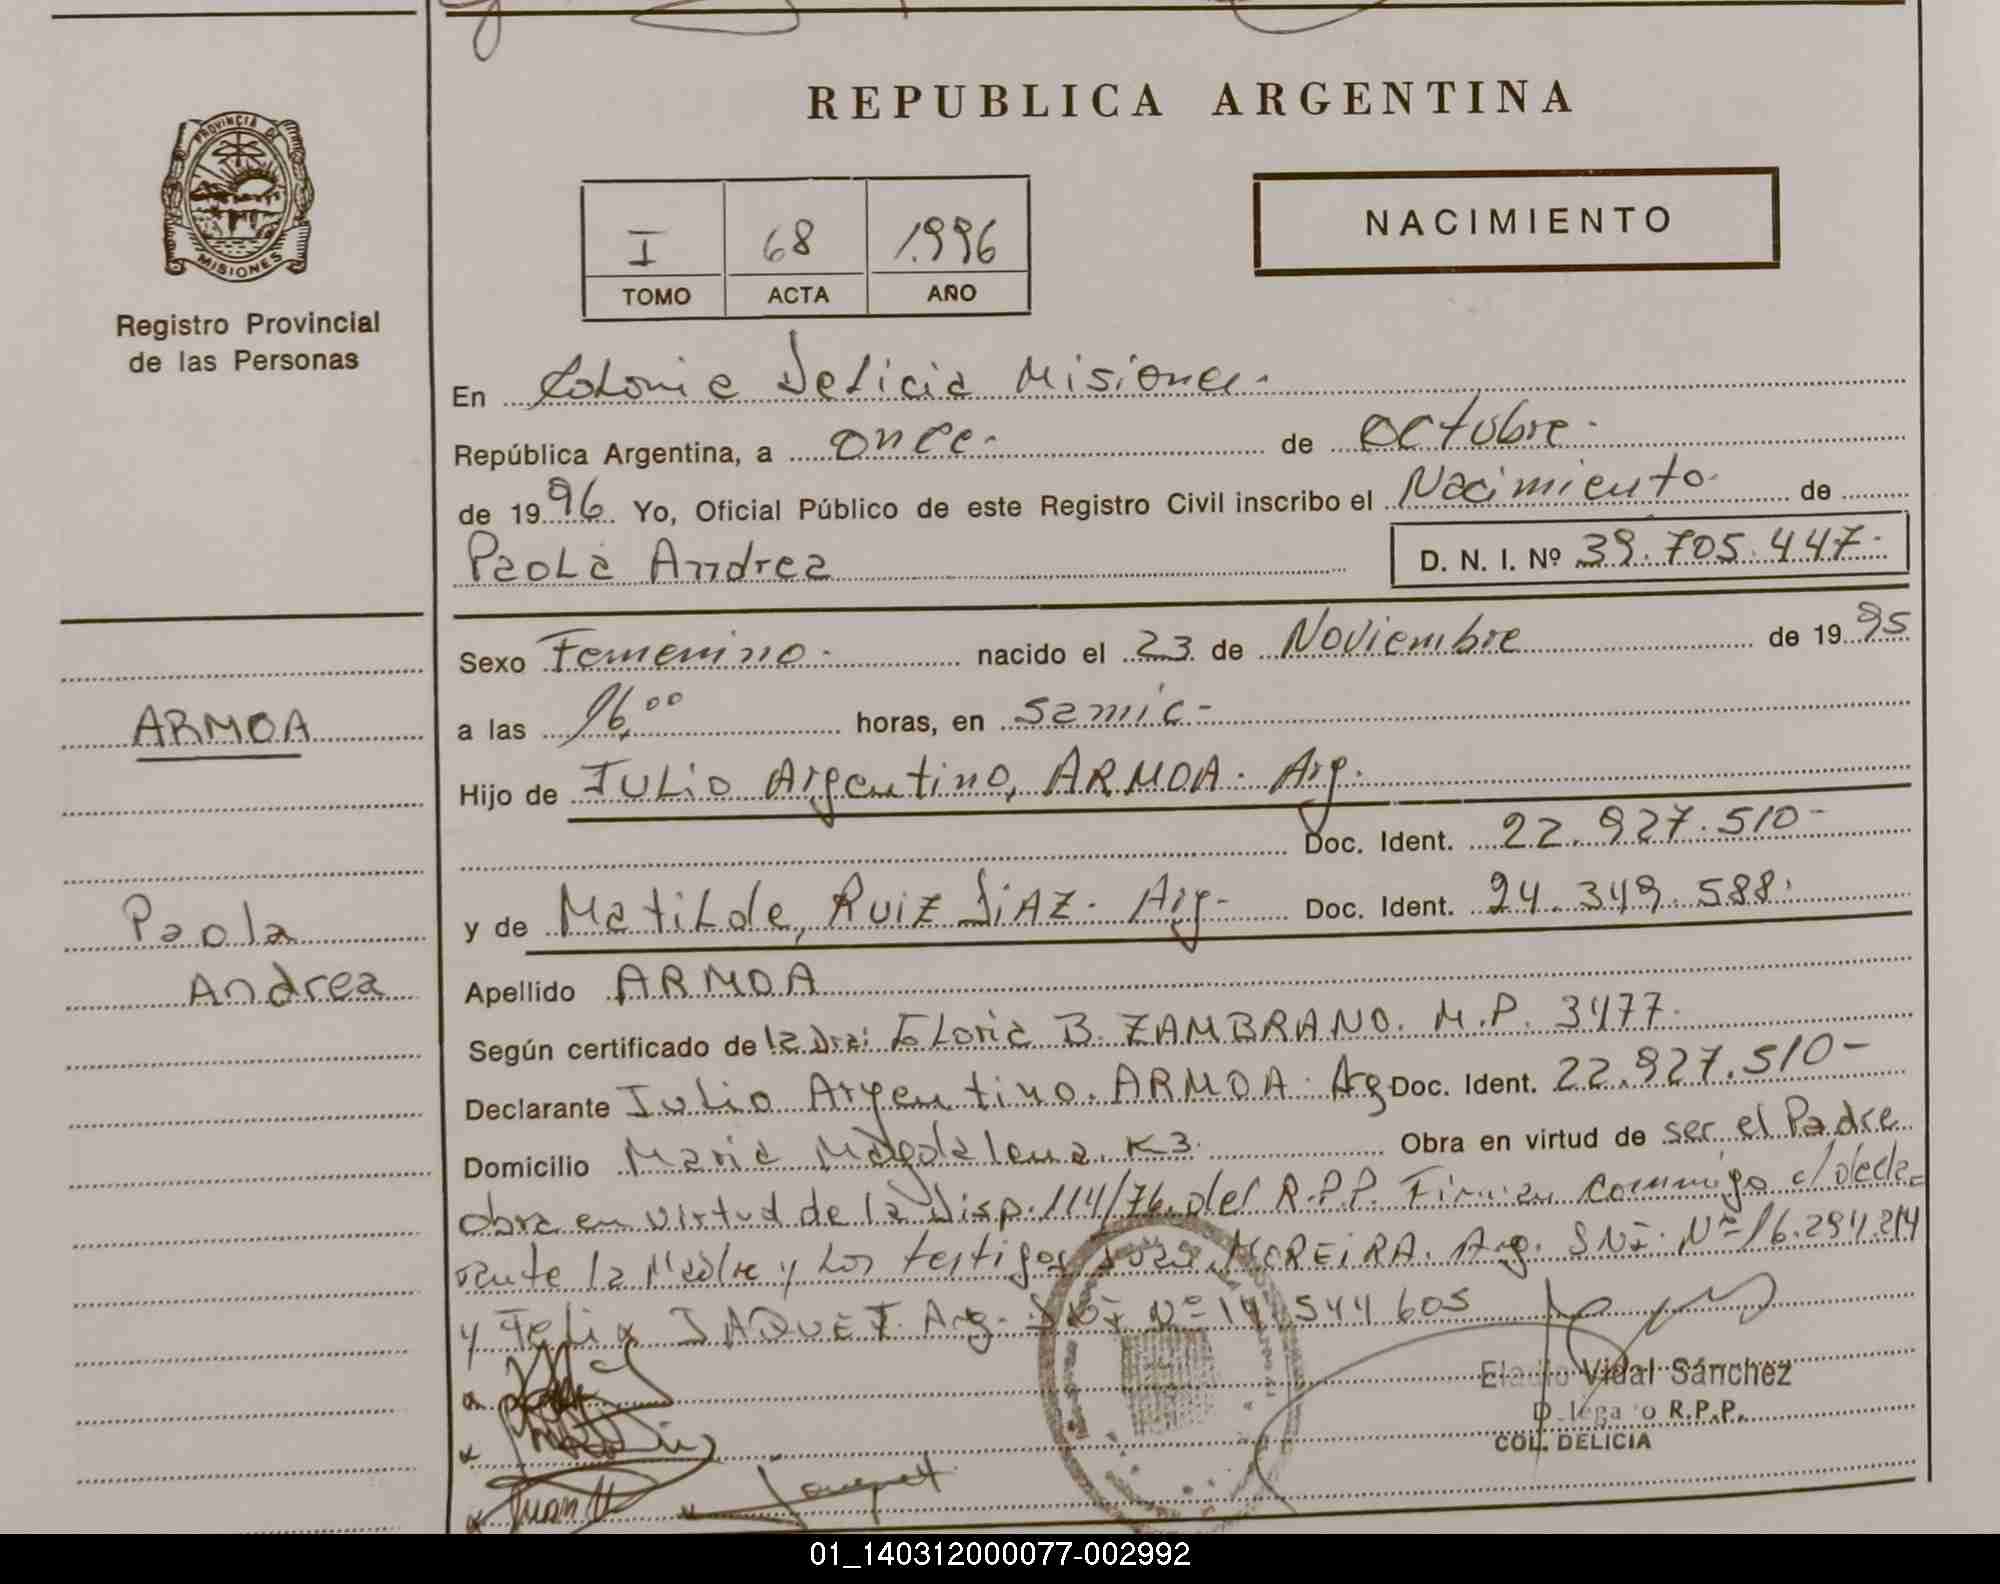 REPUBLICA ARGENTINA
PROVINCIA DE
MISIONES
Registro Provincial
de las Personas
I 68 1.996
TOMO ACTA AÑO
NACIMIENTO
En Colonia Delicia Misiones.-
República Argentina, a once.- de octubre.-
de 1996 Yo, Oficial Público de este Registro Civil inscribo el Nacimiento.- de
Paola Andrea
D. N. I. Nº 39.705.447.-
Sexo Femenino.- nacido el 23 de Noviembre de 1995
a las 16,00 horas, en samic.-
Hijo de Julio Argentino, ARMOA. Arg.
Doc. Ident. 22.927.510-
y de Matilde, RUIZ DIAZ. Arg- Doc. Ident. 24.349.588.
Apellido ARMOA
Según certificado de la Dra: Gloria B. ZAMBRANO. M.P. 3477.
Declarante Julio Argentino. ARMOA. Arg Doc. Ident. 22.927.510-
Domicilio Maria Magdalena. K3. Obra en virtud de ser el Padre
obra en virtud de la Disp. 114/76 del R.P.P. Firman conmigo el decla=
rante la Madre y los testigos Juan MOREIRA. Arg. DNI. Nº 16.294.214
y Felix JAQUET. Arg. DNI Nº 14.544.605
ARMOA
Paola
Andrea
Eladio Vidal Sánchez
Delegado R.P.P.
COL. DELICIA
Juan M
Jaquet
01_140312000077-002992